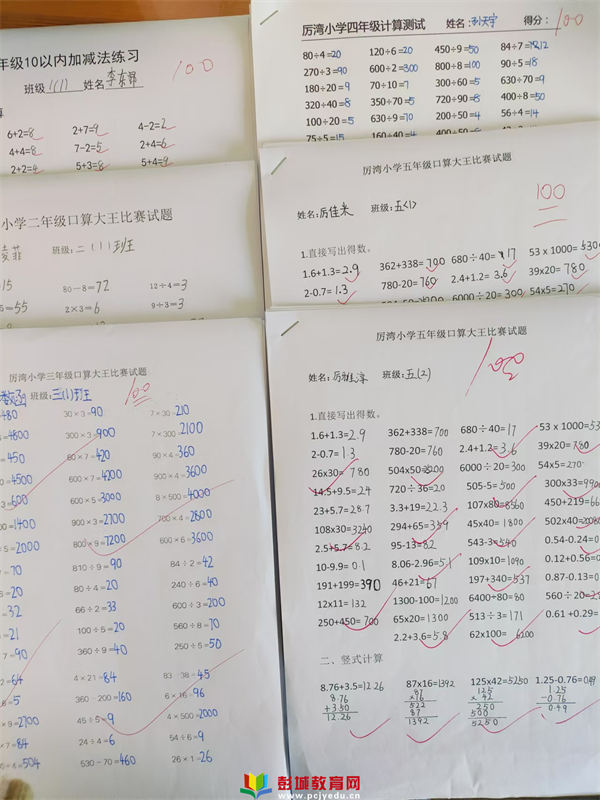 年级10以内加减法练习
班级 1(1) 姓名
100
6+2=8 2+7=9 4-2=2
4+4=8 7-2=5 2+4=6
2+2=4 5+3=8 5+4=9
厉湾小学四年级计算测试 姓名: 孙天宇 得分: 100
80÷4=20 120÷6=20 450÷9=50 84÷7=12
270÷3=90 600÷2=300 800÷8=100 90÷5=18
180÷20=9 70÷10=7 300÷60=5 630÷70=9
320÷40=8 350÷70=5 720÷90=8 400÷8=50
100÷20=5 630÷9=70 200÷50=4 56÷4=14
75÷5=15 160÷40=4
小学二年级口算大王比赛试题
班级: 二(1)班
80-8=72 12÷4=3
=55 2×3=6 9÷3=3
厉湾小学五年级口算大王比赛试题
100
姓名: 厉佳米 班级: 五(1)
1.直接写出得数。
1.6+1.3=2.9 362+338=700 680÷40=17 53×1000=5300
2-0.7=1.3 780-20=760 2.4+1.2=3.6 39×20=780
6000÷20=300 54×5=270
厉湾小学三年级口算大王比赛试题
班级: 三(1)班 100
480 30×3=90 7×30=210
=4800 300×3=900 7×300=2100
=450 60×7=420 90×4=360
=4500 600×7=4200 900×4=3600
=500 600×5=3000 8×500=4000
=1400 900×3=2700 700×4=2800
×5=2000 800×9=7200 600×6=3600
=70 810÷9=90 84÷2=42
=20 80÷4=20 240÷6=40
=32 66÷2=33 600÷3=200
=21 100÷5=20 250÷5=50
=90 360÷9=40
=64 4×21=84 83-38=45
=5 360-200=160 6×16=96
×9=2700 45÷5=9 4×500=2000
×7=84 24÷4=6 54÷6=9
=504 530-70=460 26×1=26
厉湾小学五年级口算大王比赛试题
100
姓名: 班级: 五(2)
1.直接写出得数。
1.6+1.3=2.9 362+338=700 680÷40=17 53×1000=
2-0.7=1.3 780-20=760 2.4+1.2=3.6 39×20=780
26×30=780 504×50= 6000÷20=300 54×5=270
14.5+9.5=24 720÷36=20 505-5=500 300×33=9900
23+5.7=28.7 3.3+19=22.3 107×80=8560 450+219=
108×30=3240 294+65=359 45×40=1800 502×40=
2.5+5.7=8.2 95-13=82 543-3=540 0.54-0.24=
10-9.9=0.1 8.06-2.96=5.1 109×10=1090 0.12+0.56=
191+199=390 46+21=67 197+340=537 0.87-0.13=
12×11=132 1300-100=1200 6400÷80=80 560÷20=
250+450=700 65×20=1300 513÷3=171 0.61+0.29=
2.2+3.6=5.8 62×100=6200
二、竖式计算
8.76+3.5=12.26 87×16=1392 125×42=5250 1.25-0.76=0.49
8.76 87 125 1.25
+3.50 ×16 ×42 -0.76
12.26 522 250 0.49
87 500
1392 5250
彭城教育网
www.pcjyedu.cn